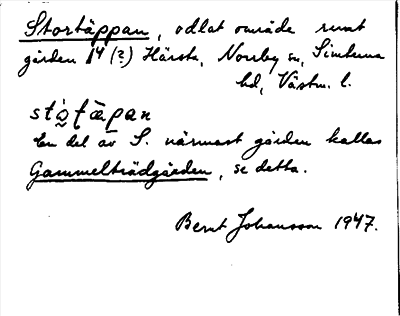 Stortäppan, odlat område runt
gården 1⁴ (?) Härsta, Norrby sn, Simtuna
hd, Västm. l.
En del av S. närmast gården kallas
Gammelträdgården, se detta.
Bernt Johansson 1947.